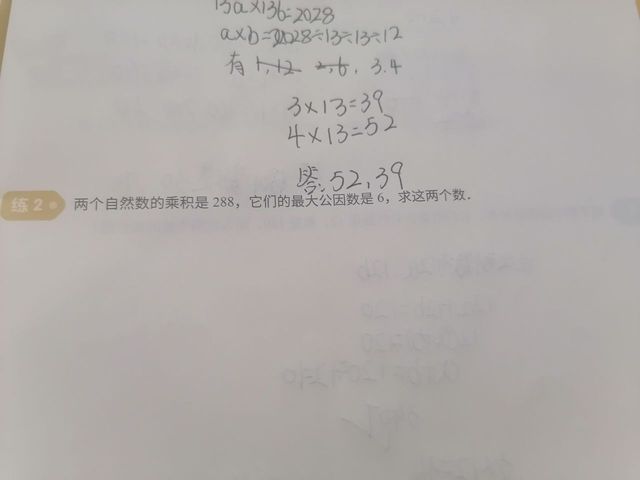 13a×13b=2028
a×b=2028÷13÷13÷12
有 1,12 2,6, 3.4
3×13=39
4×13=52
答:52,39
练 2 两个自然数的乘积是 288，它们的最大公因数是 6，求这两个数.